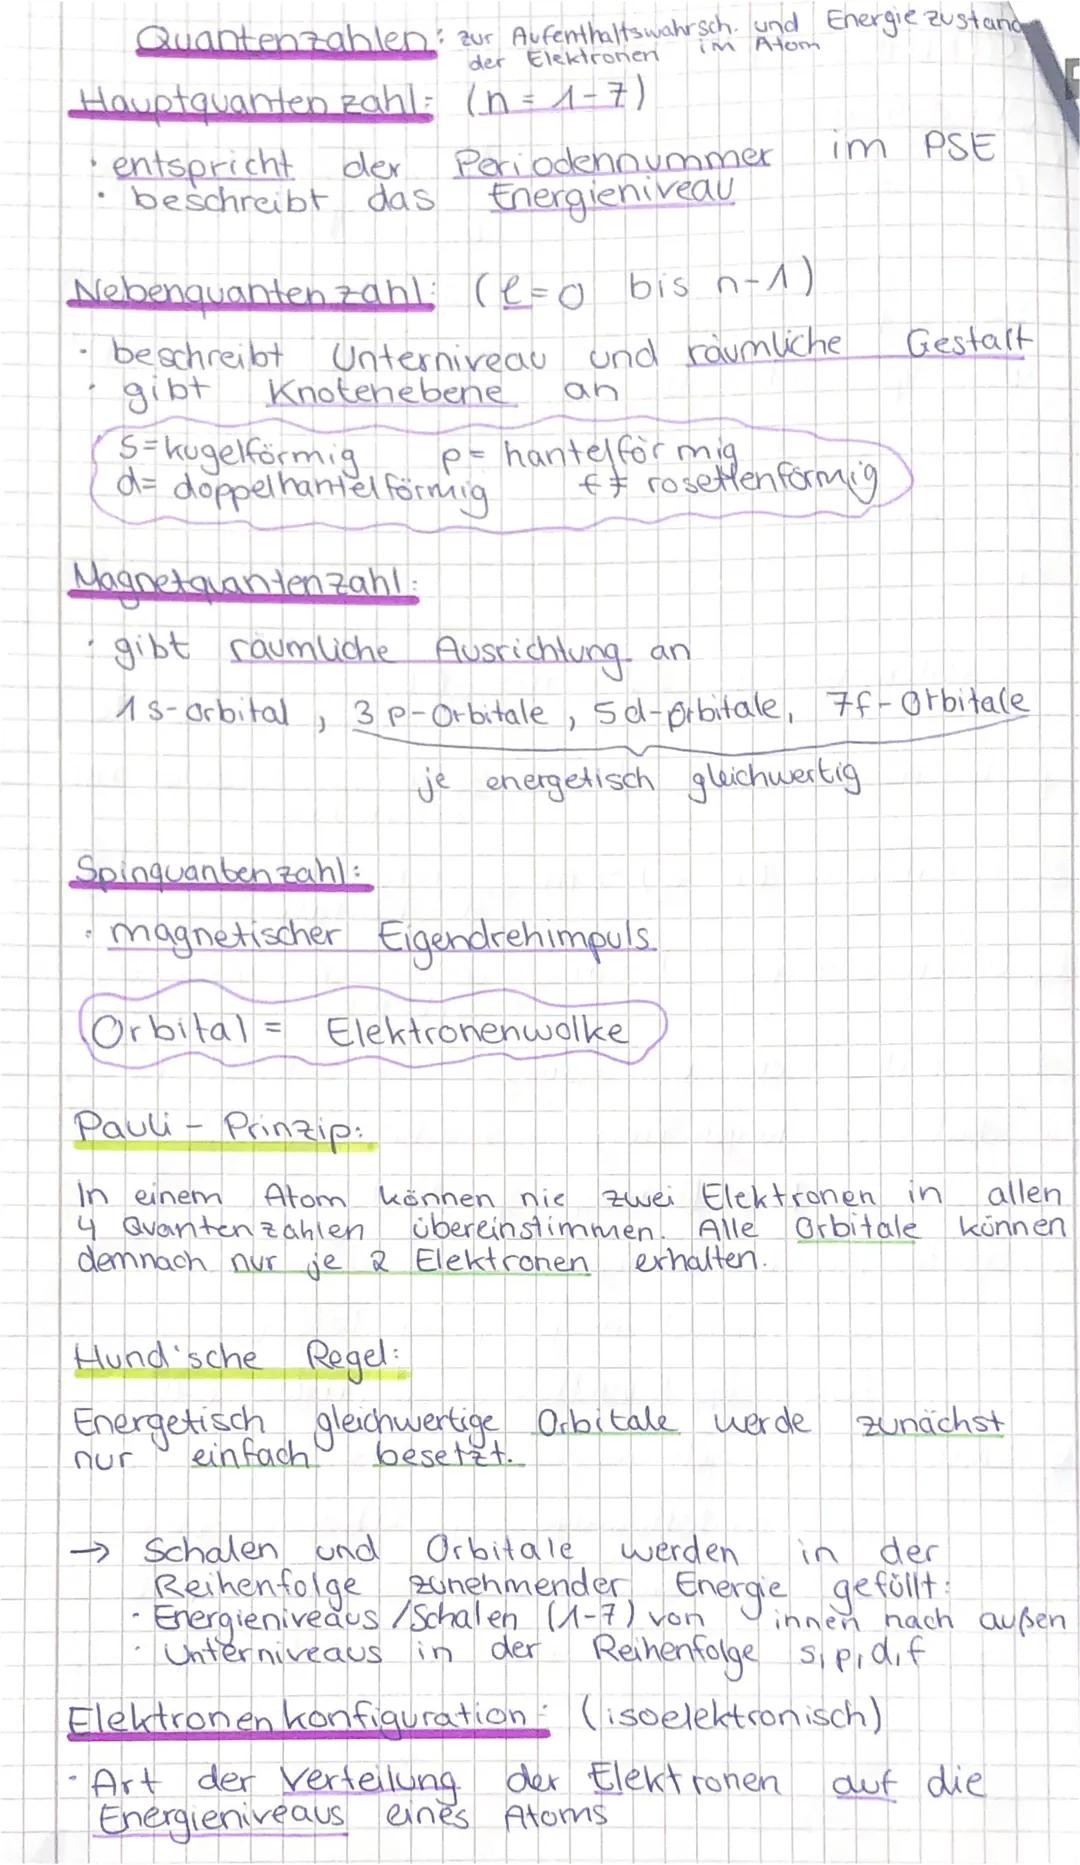 Quantenzahlen: zur Aufenthaltswahrsch. und Energiezustand
der Elektronen im Atom
Hauptquantenzahl: (n = 1-7)
· entspricht der Periodennummer im PSE
· beschreibt das Energieniveau
Nebenquantenzahl: (l=0 bis n-1)
· beschreibt Unterniveau und räumliche Gestalt
· gibt Knotenebene an
s=kugelförmig p= hantelförmig
d= doppelhantelförmig f= rosettenförmig
Magnetquantenzahl:
· gibt räumliche Ausrichtung an
1 s-Orbital, 3 p-Orbitale, 5 d-Orbitale, 7 f-Orbitale
je energetisch gleichwertig
Spinquantenzahl:
· magnetischer Eigendrehimpuls
Orbital = Elektronenwolke
Pauli-Prinzip:
In einem Atom können nie zwei Elektronen in allen
4 Quantenzahlen übereinstimmen. Alle Orbitale können
demnach nur je 2 Elektronen erhalten.
Hund'sche Regel:
Energetisch gleichwertige Orbitale werde zunächst
nur einfach besetzt.
→ Schalen und Orbitale werden in der
Reihenfolge zunehmender Energie gefüllt:
· Energieniveaus/Schalen (1-7) von innen nach außen
· Unterniveaus in der Reihenfolge s, p, d, f
Elektronenkonfiguration: (isoelektronisch)
· Art der Verteilung der Elektronen auf die
Energieniveaus eines Atoms